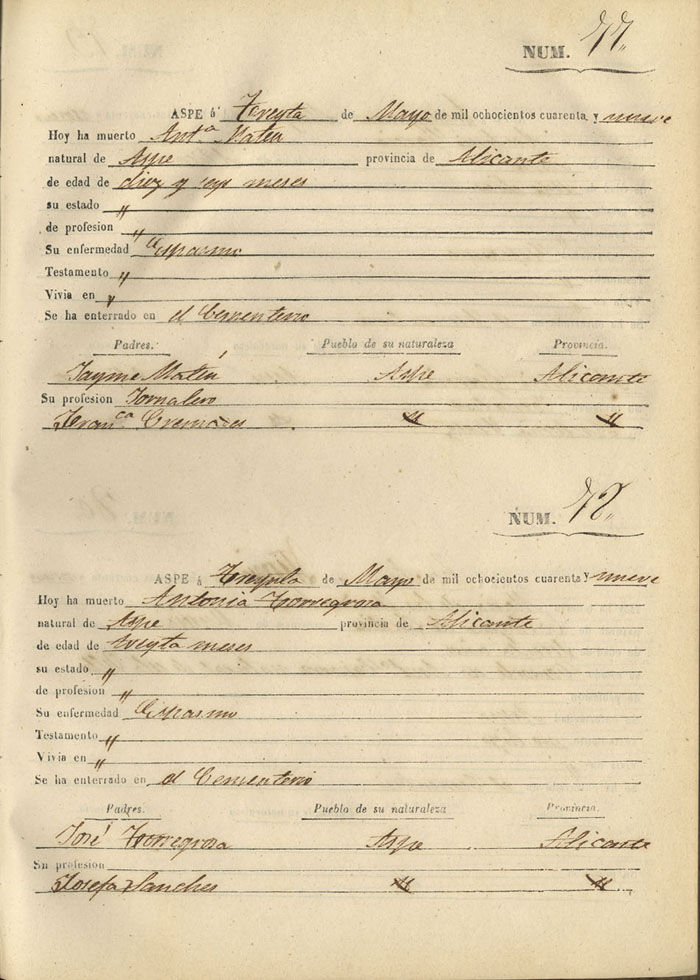 NUM. 77„
ASPE á Treynta de Mayo de mil ochocientos cuarenta y nueve
Hoy ha muerto Ant.ª Mateu
natural de Aspe provincia de Alicante
de edad de diez y seys meses
su estado „
de profesion „
Su enfermedad Espasmo
Testamento „
Vivia en „
Se ha enterrado en el Cementerio
Padres. Pueblo de su naturaleza Provincia.
Jayme Mateu Aspe Alicante
Su profesion Jornalero
Fran.ca Cremades „ „
NUM. 78„
ASPE á Treynta de Mayo de mil ochocientos cuarenta y nueve
Hoy ha muerto Antonia Torregrosa
natural de Aspe provincia de Alicante
de edad de treynta meses
su estado „
de profesion „
Su enfermedad Espasmo
Testamento „
Vivia en „
Se ha enterrado en el Cementerio
Padres. Pueblo de su naturaleza Provincia.
José Torregrosa Aspe Alicante
Su profesion
Josefa Sanches „ „